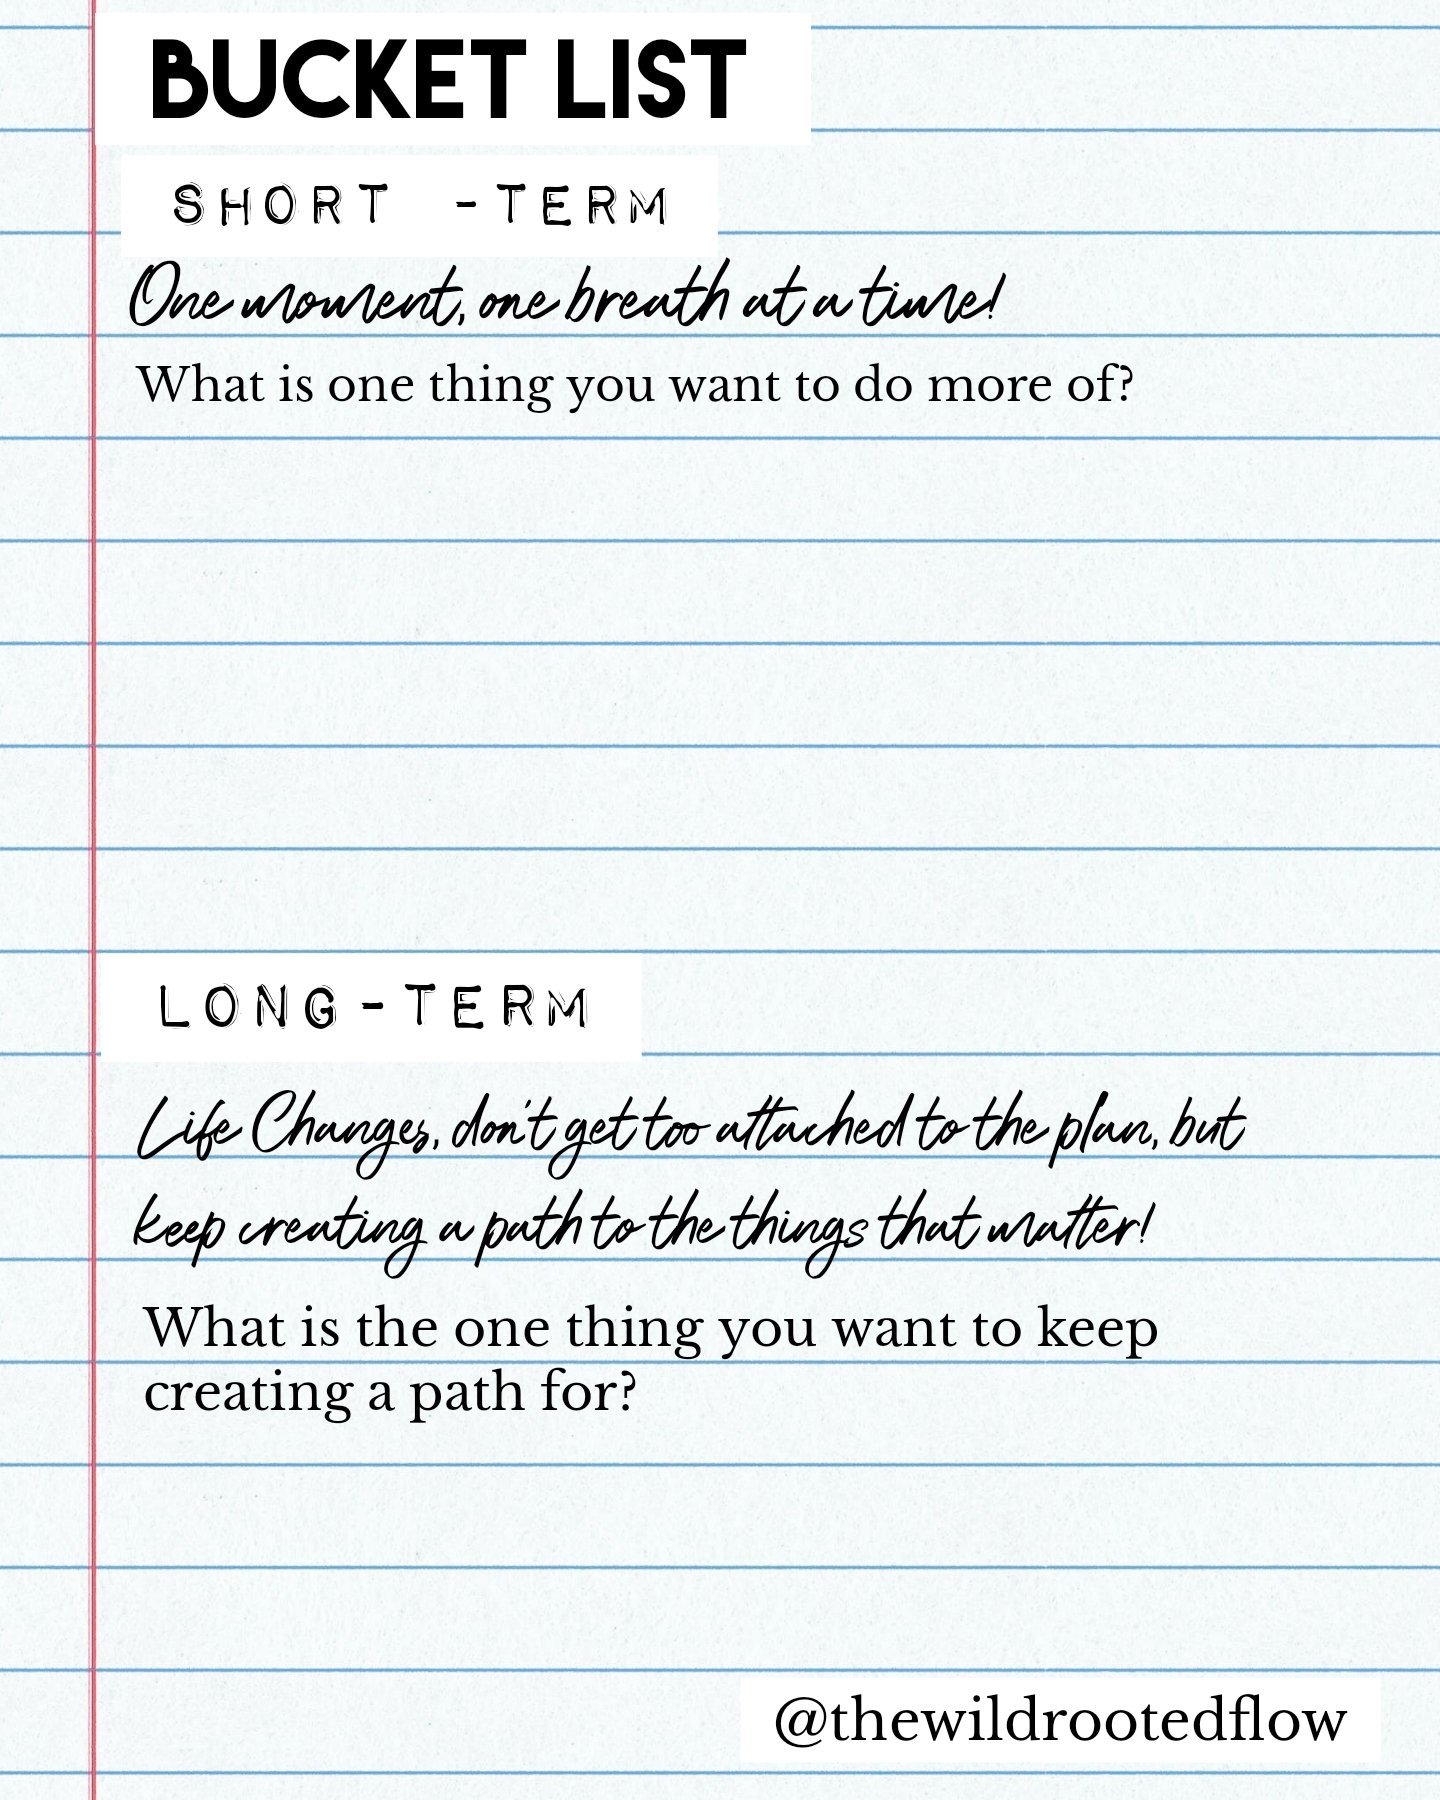 BUCKET LIST
SHORT -TERM
One moment, one breath at a time!
What is one thing you want to do more of?
LONG-TERM
Life Changes, don't get too attached to the plan, but
keep creating a path to the things that matter!
What is the one thing you want to keep
creating a path for?
@thewildrootedflow